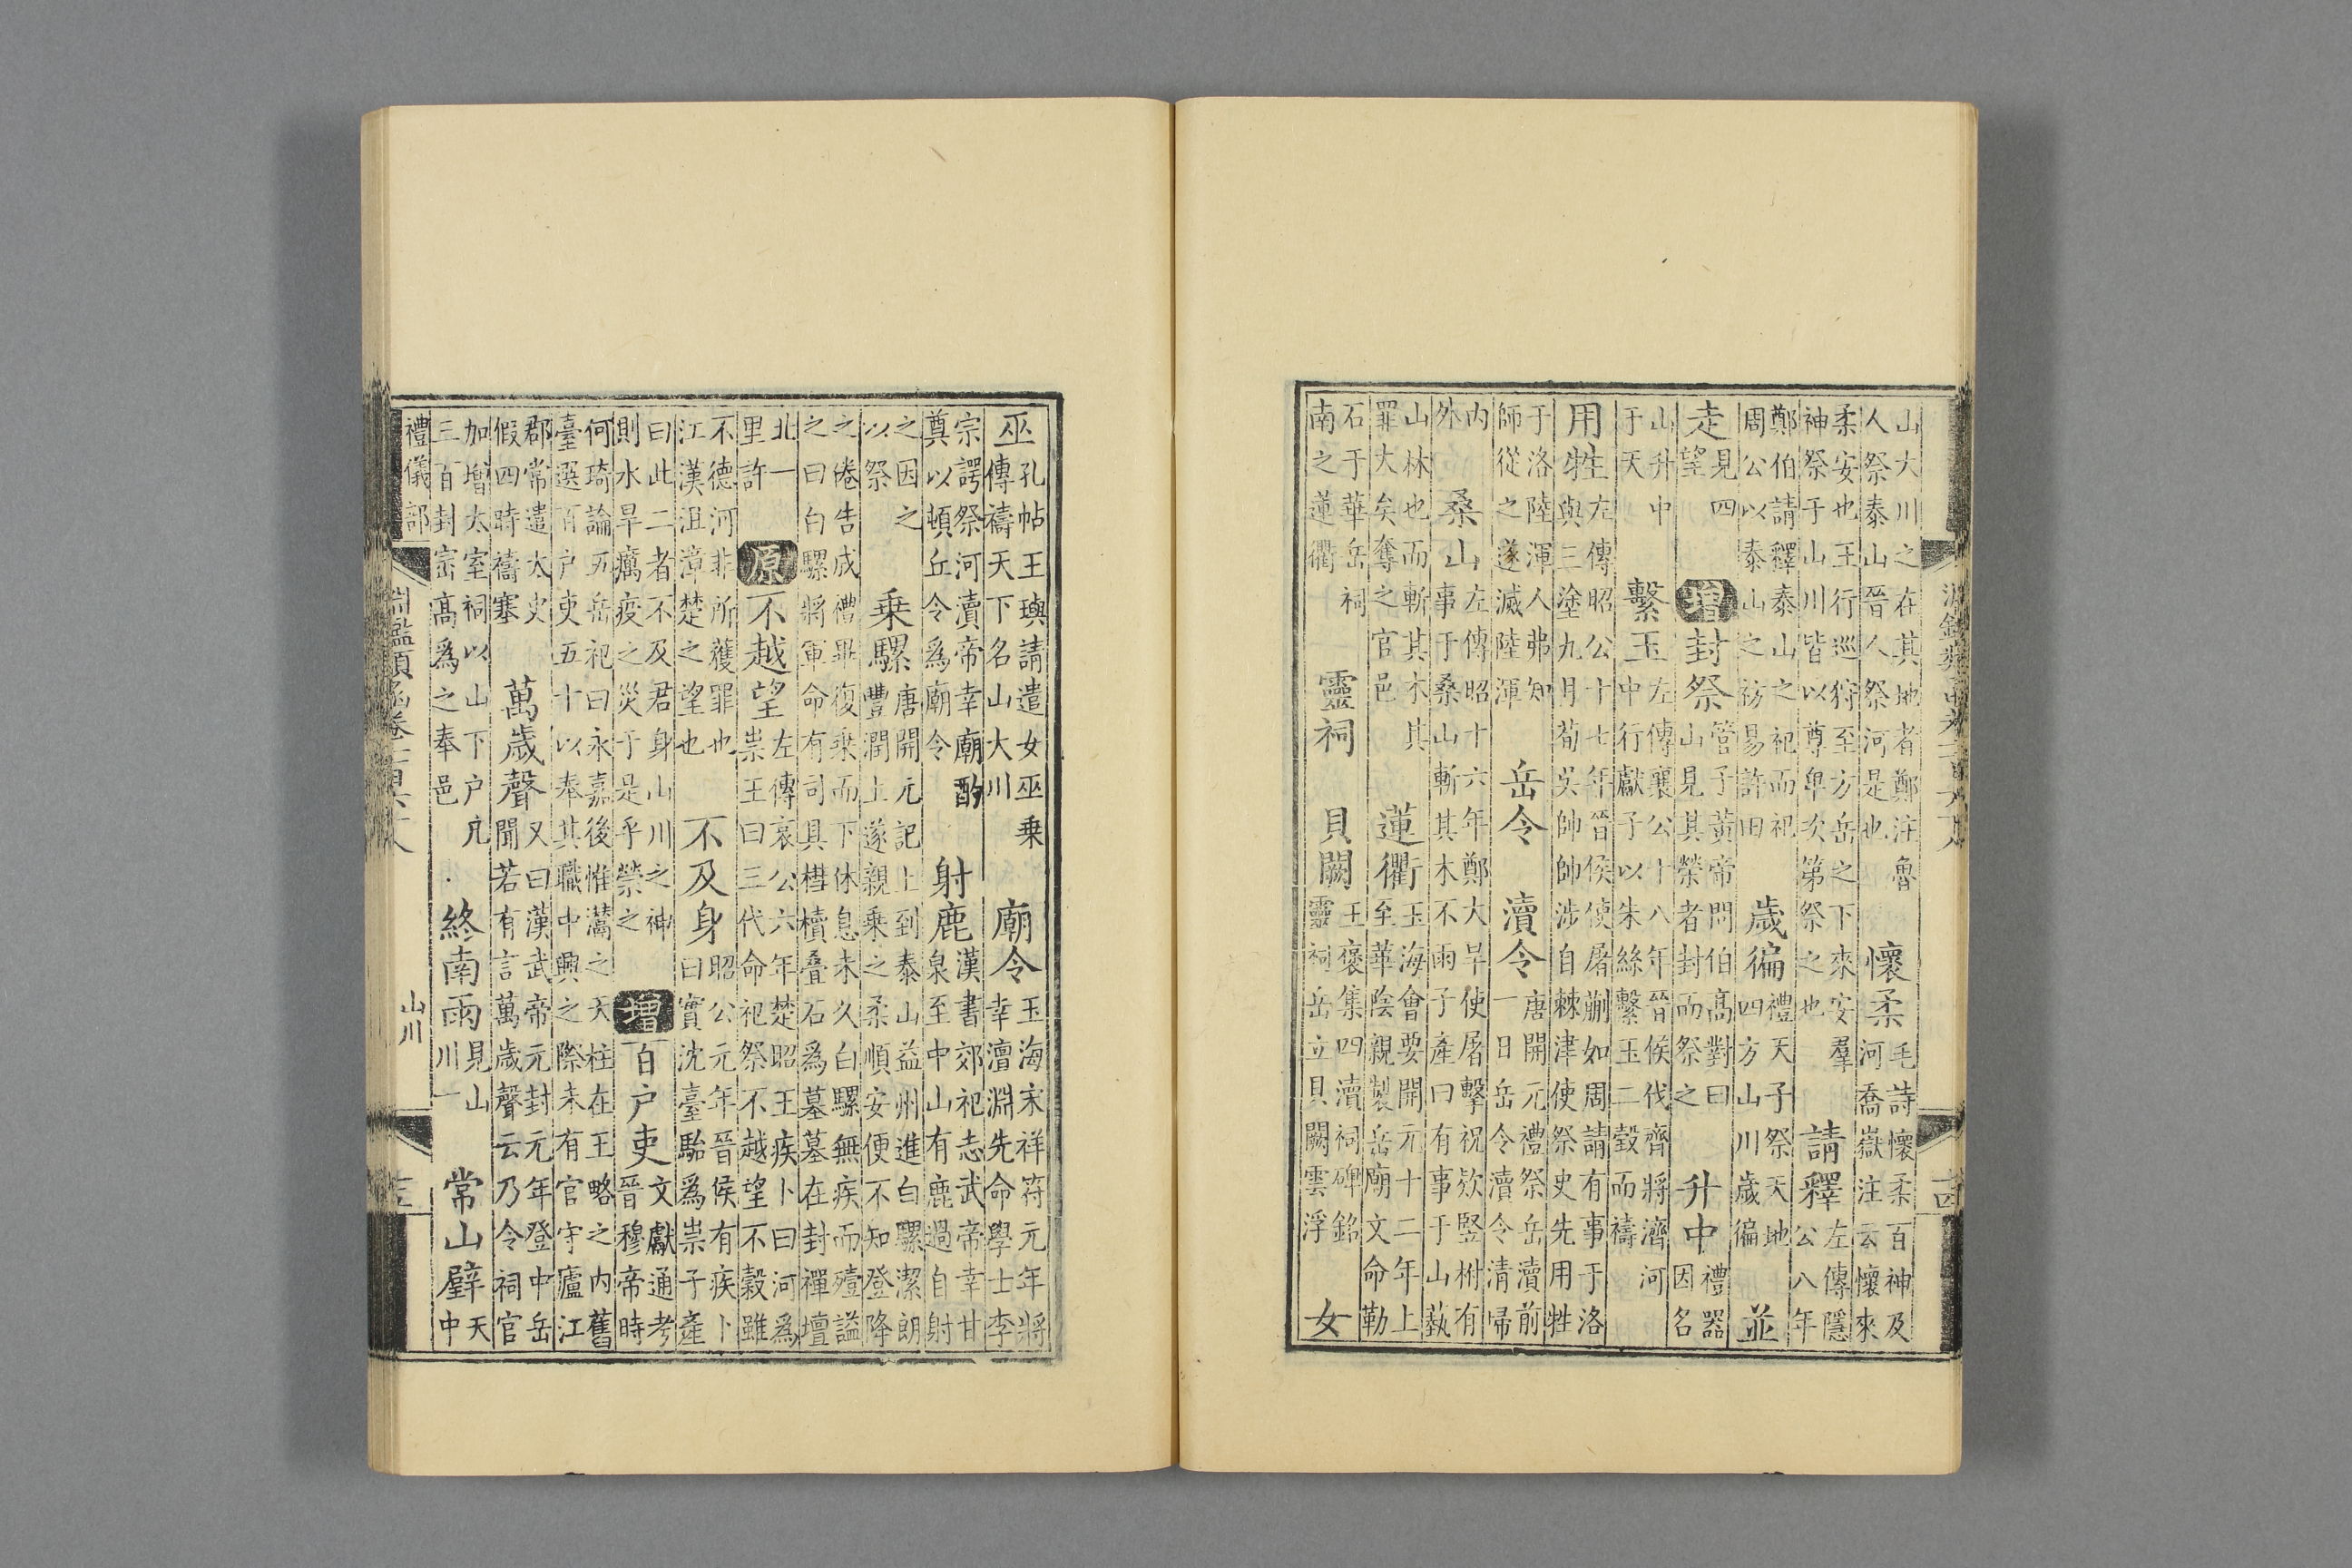 山大川之在其地者鄭注魯人祭泰山晉人祭河是也　懷柔毛詩懷柔百神及河喬嶽注云懷來
柔安也王行巡狩至方岳之下來安羣神祭于山川皆以尊卑次第祭之也　請釋左傳隱公八年
鄭伯請釋泰山之祀而祀周公以泰山之祊易許田　歲徧禮天子祭天地四方山川歲徧　並
走見四望　增封祭管子黃帝問伯高對曰山見其榮者封而祭之　升中禮器因名
山升中于天　繫玉左傳襄公十八年晉侯伐齊將濟河中行獻子以朱絲繫玉二瑴而禱
用牲左傳昭公十七年晉侯使屠蒯如周請有事于洛與三塗九月荀吳帥帥涉自棘津使祭史先用牲
于洛陸渾人弗知師從之遂滅陸渾　岳令　瀆令唐開元禮祭岳瀆前一日岳令瀆令清帚
內外　桑山左傳昭十六年鄭大旱使屠擊祝款竪柎有事于桑山斬其木不雨子產曰有事于山蓺
山林也而斬其木其罪大矣奪之官邑　蓮衢玉海會要開元十二年上至華陰親製岳廟文命勒
石于華岳祠南之蓮衢　靈祠　貝闕王褒集四瀆祠碑銘靈祠岳立貝闕雲浮　女
十四
巫孔帖王璵請遣女巫乗傳禱天下名山大川　廟令玉海宋祥符元年將幸澶淵先命學士李
宗諤祭河瀆帝幸廟酌奠以頓丘令爲廟令　射鹿漢書郊祀志武帝幸甘泉至中山有鹿過自射
之因之以祭　乗騾唐開元記上到泰山益州進白騾潔朗豐潤上遂親乘之柔順安便不知登降
之倦告成禮畢復乗而下休息未久白騾無疾而殪謚之曰白騾將軍命有司具槥櫝叠石爲墓墓在封禪壇
北一里許　原不越望左傳哀公六年楚昭王疾卜曰河爲崇王曰三代命祀祭不越望不穀雖
不德河非所獲罪也江漢沮漳楚之望也　不及身昭公元年晉侯有疾卜曰實沈臺駘爲崇子產
曰此二者不及君身山川之神則水旱癘疫之災于是乎禜之　增百户吏文獻通考晉穆帝時
何琦論五岳祀曰永嘉後惟灊之天柱在王略之内舊臺選百户吏五十以奉其職中興之際未有官守廬江
郡常遣太史假四時禱塞　萬歲聲又曰漢武帝元封元年登中岳聞若有言萬歲聲云乃令祠官
加增太室祠以山下户凡三百封崈高爲之奉邑　終南雨見山川一　常山璧天中
禮儀部
淵鑑類函卷一百六十八
山川
十三